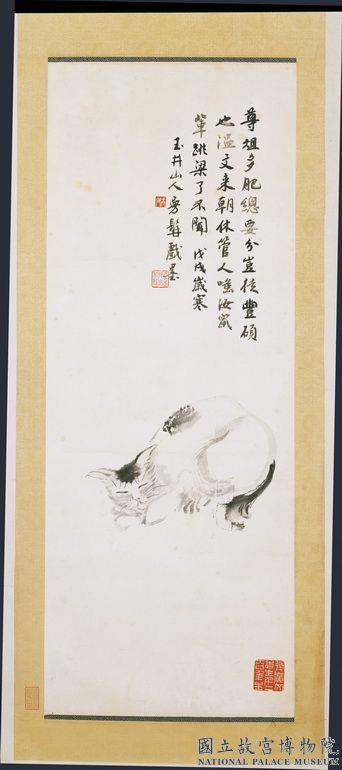 尊俎多肥總要分豈徒豐碩
也溫文来朝休管人嗤汝鼠
輩跳梁了不聞 戊戌歲寒
玉井山人 戲墨
國立故宮博物院
NATIONAL PALACE MUSEUM